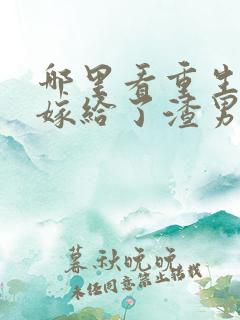 哪里看重生
嫁给了渣男
暮秋晚晚
未经同意禁止转载